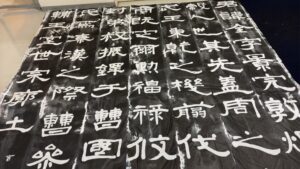 諱全字景完敦煌
穀人也其先蓋周之
武王秉乾之機翦伐
商既定爾勳福祿攸
封弟叔振鐸于曹國
氏焉秦漢之際曹參
輔王室世宗廓土斥